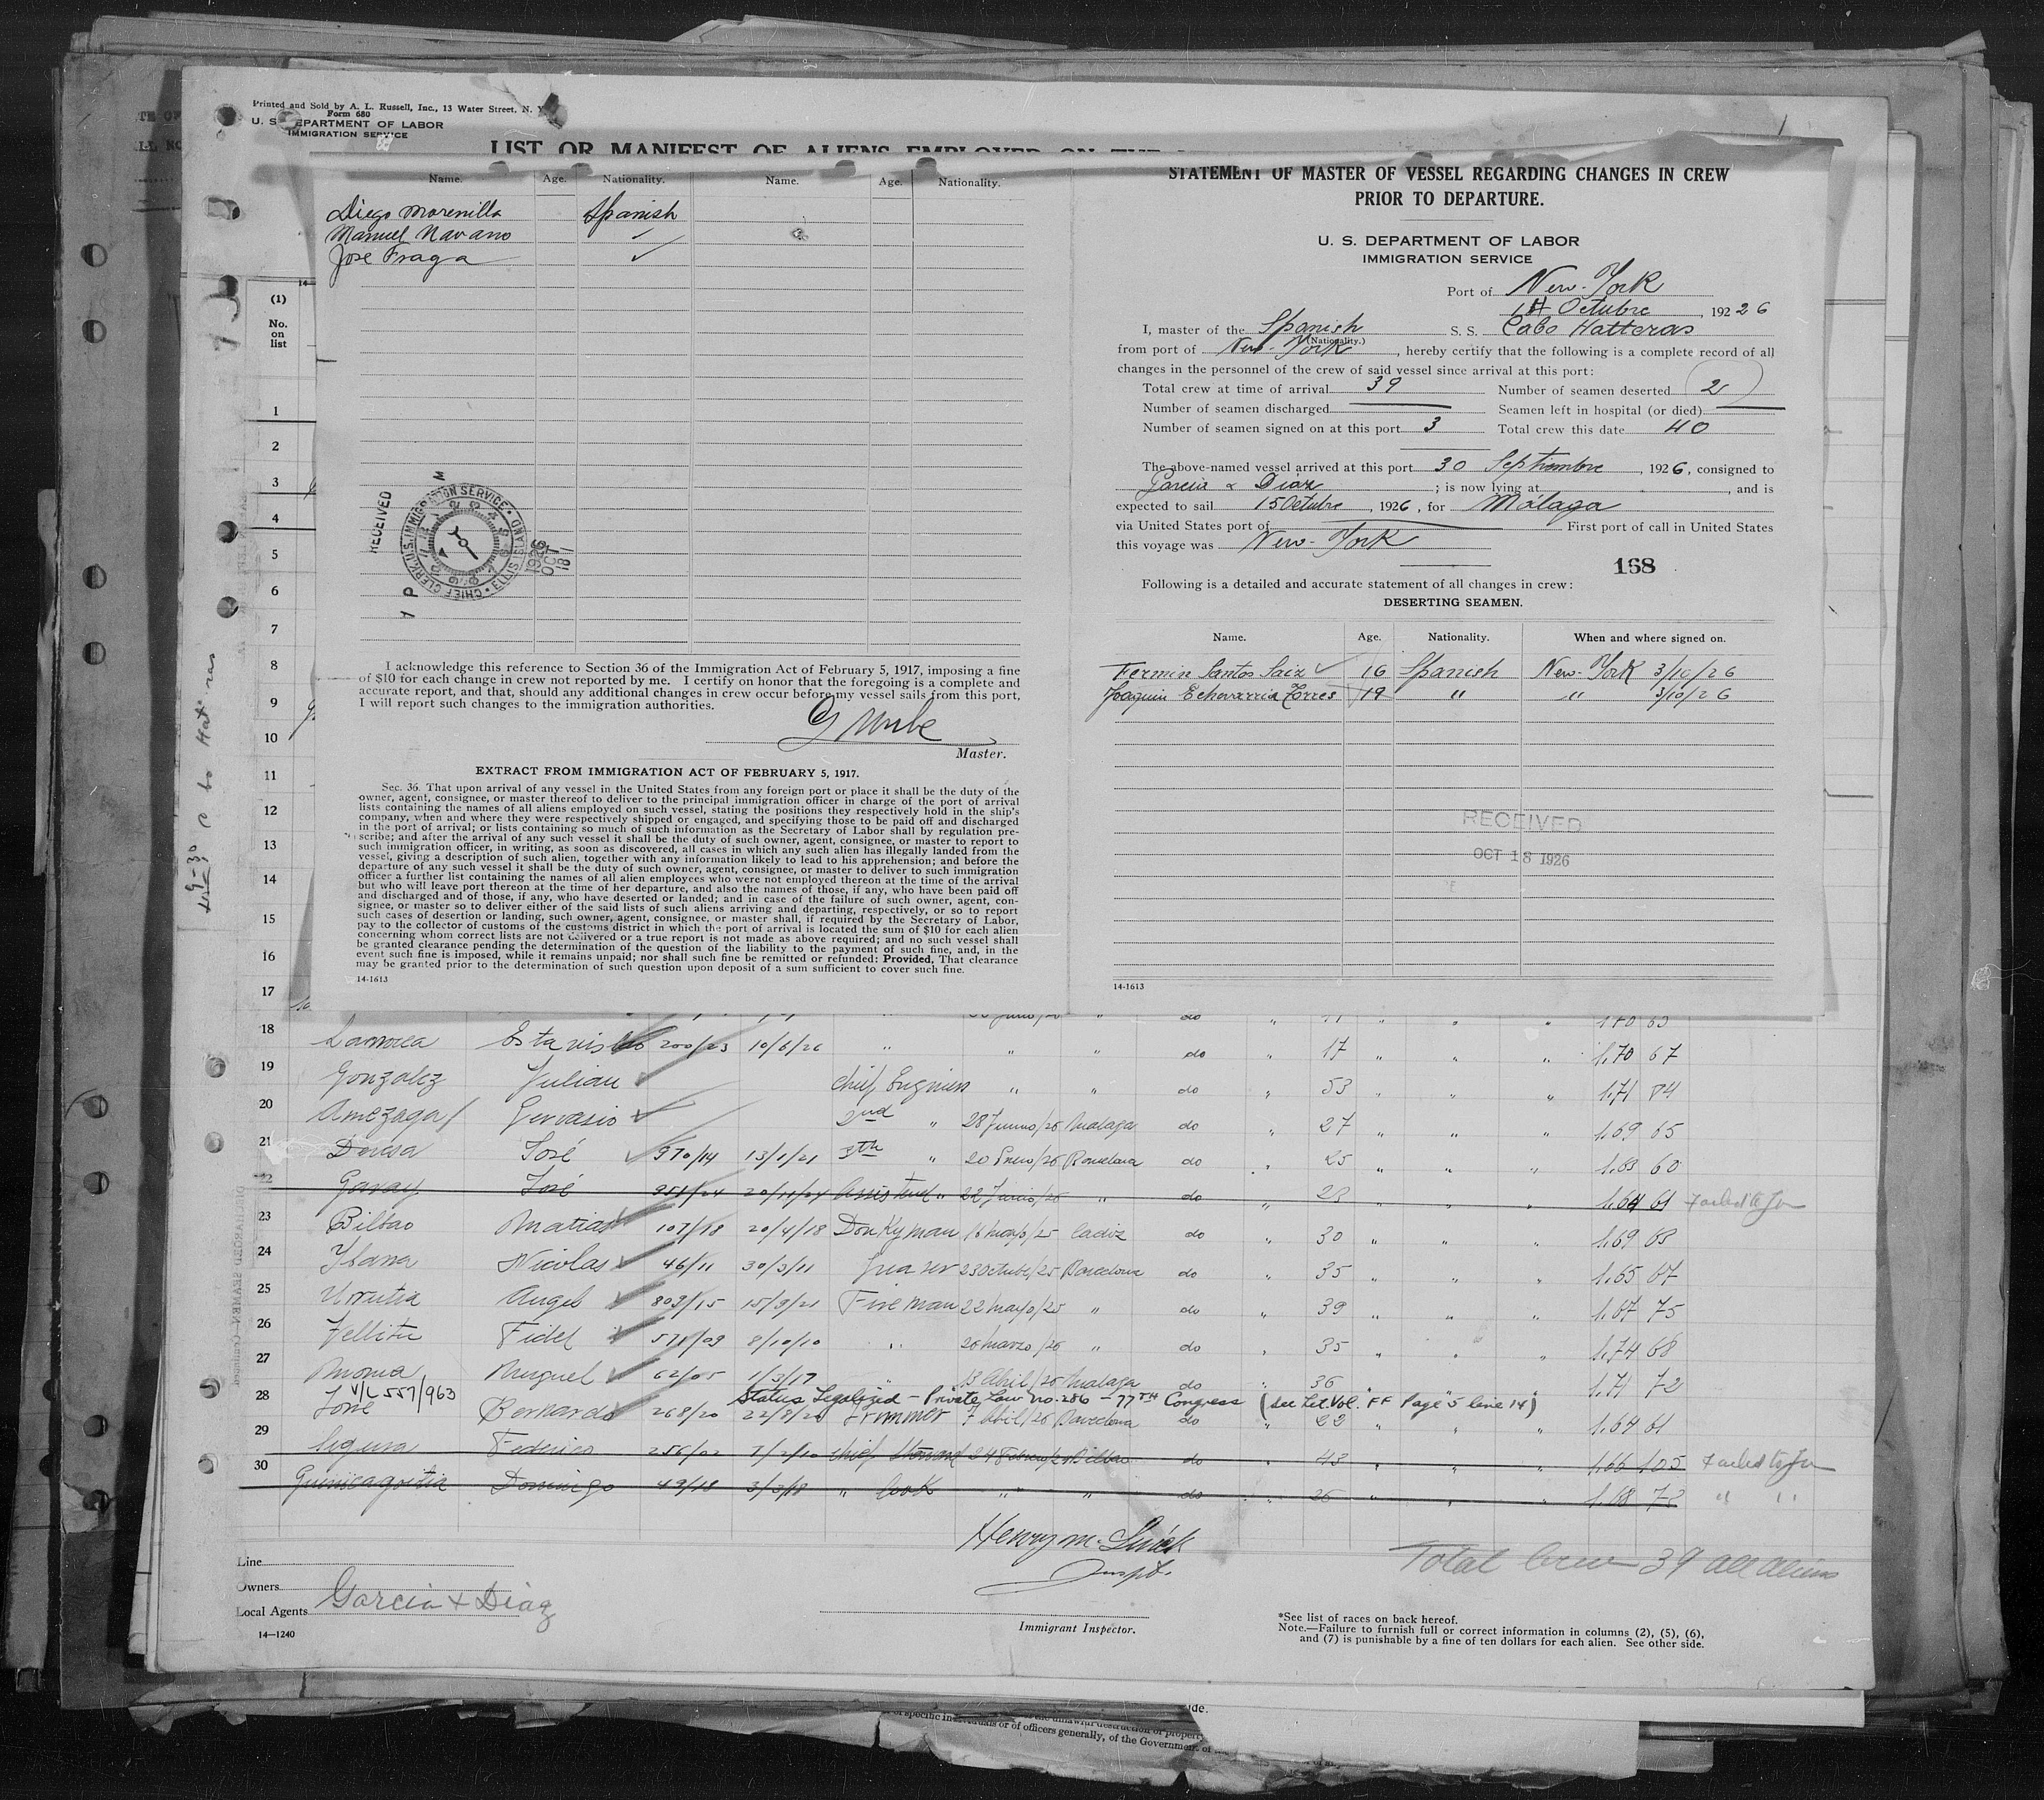 Printed and Sold by A. L. Russell, Inc., 13 Water Street, N. Y.
Form 680
U. S. DEPARTMENT OF LABOR
IMMIGRATION SERVICE
LIST OR MANIFEST OF ALIENS EMPLOYED ON THE
Name. Age. Nationality. Name. Age. Nationality.
Diego Morenilla Spanish
Manuel Navarro
Jose Fraga
RECEIVED
CHIEF CLERK, U.S. IMMIGRATION SERVICE • ELLIS ISLAND •
1926 OCT 18
I acknowledge this reference to Section 36 of the Immigration Act of February 5, 1917, imposing a fine
of $10 for each change in crew not reported by me. I certify on honor that the foregoing is a complete and
accurate report, and that, should any additional changes in crew occur before my vessel sails from this port,
I will report such changes to the immigration authorities.
Master.
EXTRACT FROM IMMIGRATION ACT OF FEBRUARY 5, 1917.
Sec. 36. That upon arrival of any vessel in the United States from any foreign port or place it shall be the duty of the
owner, agent, consignee, or master thereof to deliver to the principal immigration officer in charge of the port of arrival
lists containing the names of all aliens employed on such vessel, stating the positions they respectively hold in the ship's
company, when and where they were respectively shipped or engaged, and specifying those to be paid off and discharged
in the port of arrival; or lists containing so much of such information as the Secretary of Labor shall by regulation pre-
scribe; and after the arrival of any such vessel it shall be the duty of such owner, agent, consignee, or master to report to
such immigration officer, in writing, as soon as discovered, all cases in which any such alien has illegally landed from the
vessel, giving a description of such alien, together with any information likely to lead to his apprehension; and before the
departure of any such vessel it shall be the duty of such owner, agent, consignee, or master to deliver to such immigration
officer a further list containing the names of all alien employees who were not employed thereon at the time of the arrival
but who will leave port thereon at the time of her departure, and also the names of those, if any, who have been paid off
and discharged and of those, if any, who have deserted or landed; and in case of the failure of such owner, agent, con-
signee, or master so to deliver either of the said lists of such aliens arriving and departing, respectively, or so to report
such cases of desertion or landing, such owner, agent, consignee, or master shall, if required by the Secretary of Labor,
pay to the collector of customs of the customs district in which the port of arrival is located the sum of $10 for each alien
concerning whom correct lists are not delivered or a true report is not made as above required; and no such vessel shall
be granted clearance pending the determination of the question of the liability to the payment of such fine, and, in the
event such fine is imposed, while it remains unpaid; nor shall such fine be remitted or refunded: Provided, That clearance
may be granted prior to the determination of such question upon deposit of a sum sufficient to cover such fine.
14-1613
STATEMENT OF MASTER OF VESSEL REGARDING CHANGES IN CREW
PRIOR TO DEPARTURE.
U. S. DEPARTMENT OF LABOR
IMMIGRATION SERVICE
Port of New-York
14 Octubre, 1926
I, master of the Spanish S. S. Cabo Hatteras
(Nationality.)
from port of New-York, hereby certify that the following is a complete record of all
changes in the personnel of the crew of said vessel since arrival at this port:
Total crew at time of arrival 39 Number of seamen deserted 2
Number of seamen discharged Seamen left in hospital (or died)
Number of seamen signed on at this port 3 Total crew this date 40
The above-named vessel arrived at this port 30 Septiembre, 1926, consigned to
Garcia & Diaz; is now lying at , and is
expected to sail 15 Octubre, 1926, for Málaga
via United States port of First port of call in United States
this voyage was New-York
168
Following is a detailed and accurate statement of all changes in crew:
DESERTING SEAMEN.
Name. Age. Nationality. When and where signed on.
Fermin Santos Saiz 16 Spanish New-York 3/10/26
Joaquin Echevarria Torres 19 " " 3/10/26
RECEIVED
OCT 18 1926
14-1613
(1)
No.
on
list
1
2
3
4
5
6
7
8
9
10
11
12
13
14
15
16
17
18 Larrorea Estanislao 200/23 10/6/26 " " " do " 17 " " " 1,70 67
19 Gonzalez Julian Chief Engineer " " do " 53 " " " 1,71 84
20 Amezaga Gervasio 2nd " 28 Junio/26 Malaga do " 27 " " " 1,69 65
21 José 970/14 13/1/21 3th " 20 Enero/26 Barcelona do " 25 " " " 1,63 60
22 Garay José 951/24 20/11/24 Assistend " 22 Junio/26 " do " 23 " " " 1,64 61 Failed to Join
23 Bilbao Matias 107/18 20/4/18 Donkyman 16 mayo/25 Cadiz do " 30 " " " 1,69 63
24 Nicolas 46/11 30/3/11 23 Octubre/25 Barcelona do " 35 " " " 1,65 67
25 Urrutia Angel 803/15 15/9/21 Fireman 22 mayo/25 " do " 39 " " " 1,67 75
26 Tellitu Fidel 571/09 8/10/10 " 26 Marzo/26 " do " 35 " " " 1,74 68
27 Miguel 62/05 1/3/17 " 13 Abril/26 Malaga do " 36 " " " 1,71 72
V/L 557/963 Status Legalized - Private Law no. 286 - 77TH Congress (see Let. Vol. FF Page 5 line 14)
28 Bernardo 268/20 22/8/20 Trimmer 7 Abril/26 Barcelona do " 22 " " " 1,64 61
29 Segura Federico 256/02 7/2/10 Chief Steward 24 Febrero/26 Bilbao do " 43 " " " 1,66 105 Failed to Join
30 Guinicagoitia Domingo 49/18 3/3/18 " Cook " " do " 26 " " " 1,68 72 " "
Inspt.
Total Crew 39 all aliens
Line
Owners
Local Agents Garcia + Diaz
14—1240
Immigrant Inspector.
*See list of races on back hereof.
Note.—Failure to furnish full or correct information in columns (2), (5), (6),
and (7) is punishable by a fine of ten dollars for each alien. See other side.
of the Government of